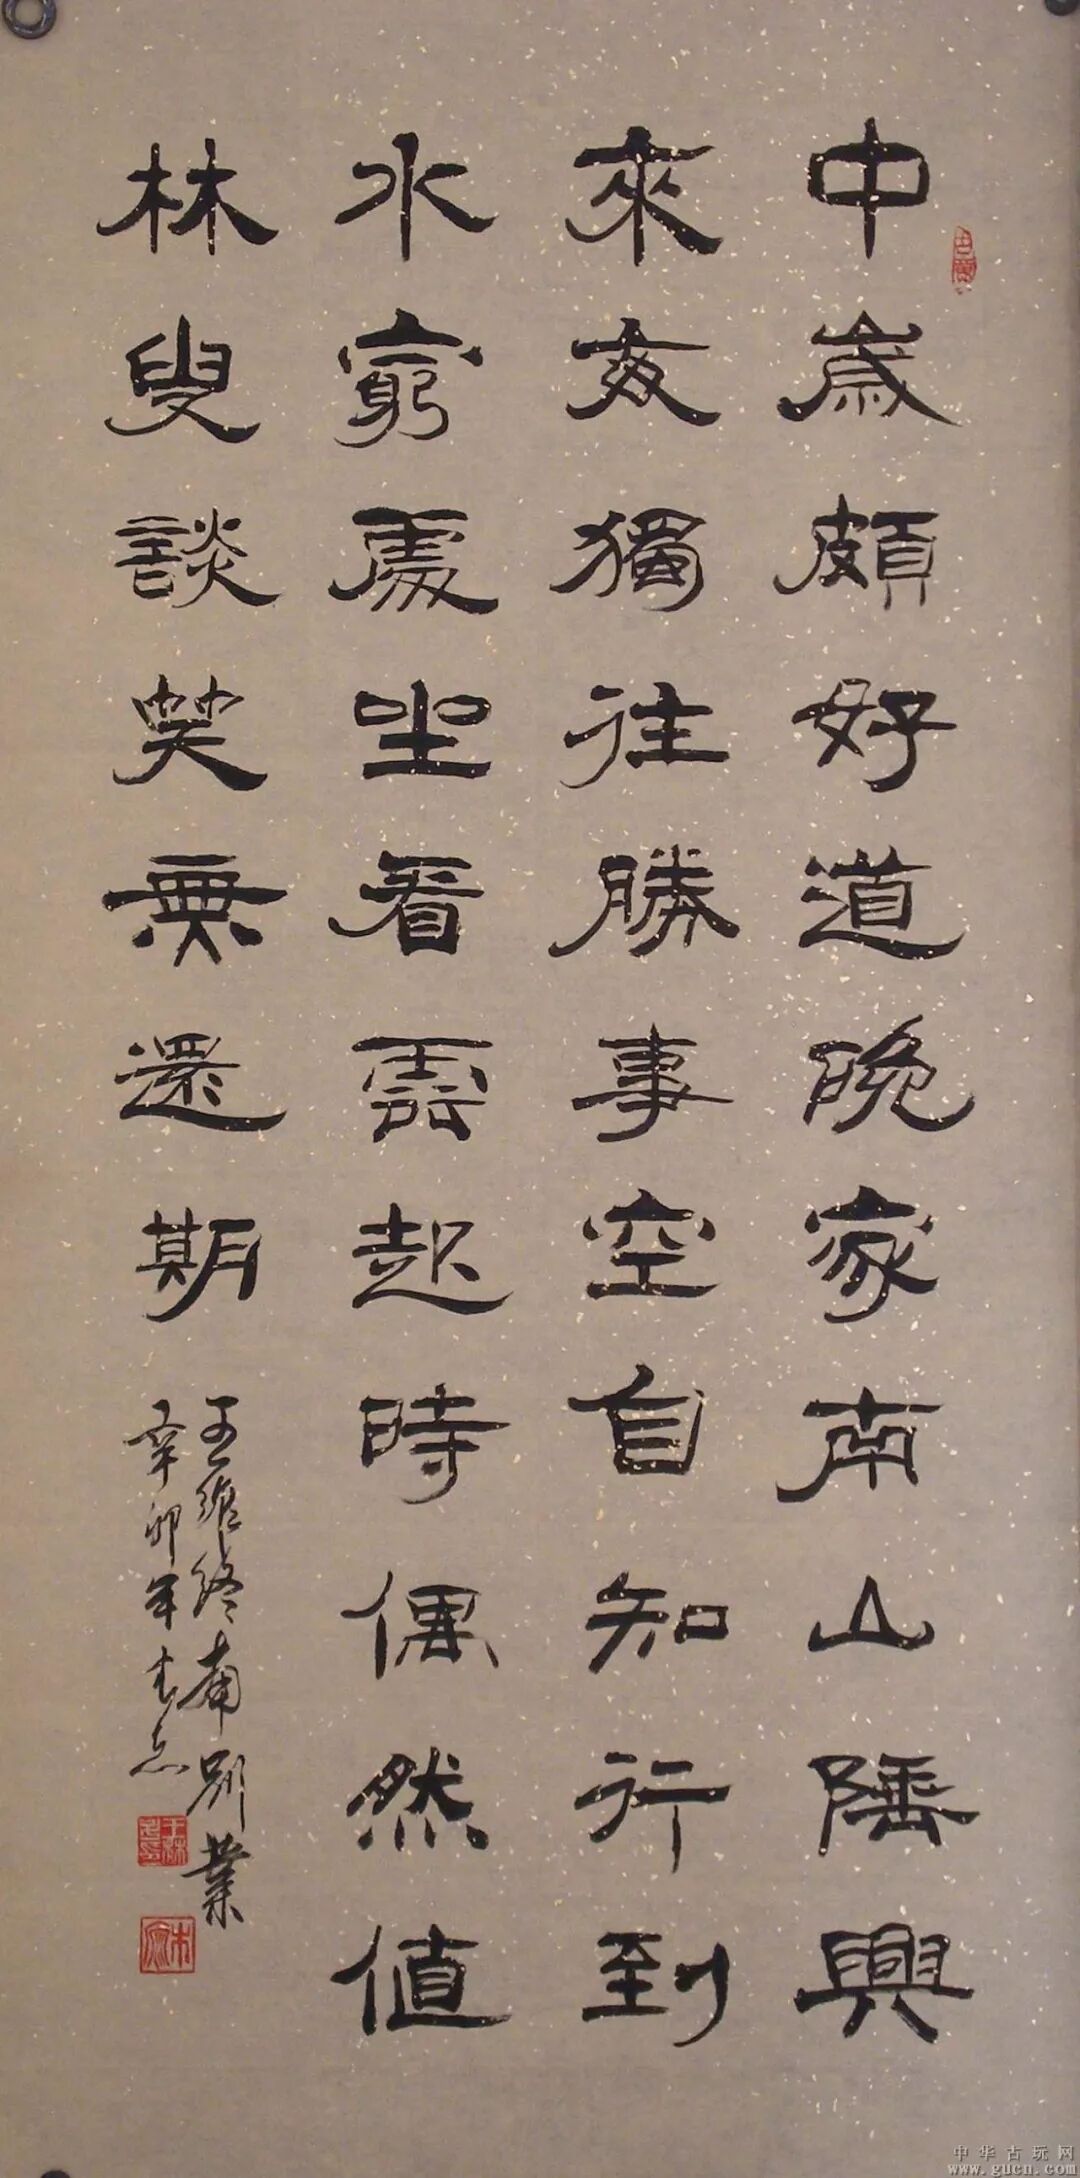 中歲頗好道晚家南山陲興
來每獨往勝事空自知行到
水窮處坐看雲起時偶然值
林叟談笑無還期
王維終南別業
辛卯年
中华古玩网
www.gucn.com